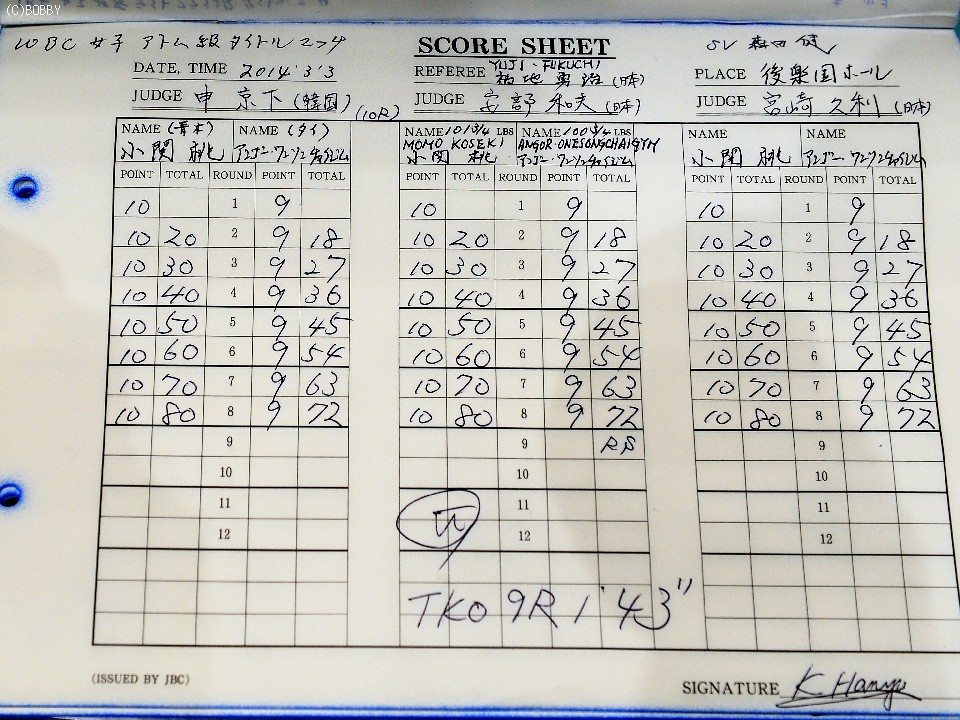 (C)BOBBY
WBC 女子 アトム級タイトルマッチ
SCORE SHEET
SV 森田 健
DATE, TIME 2014'3'3
REFEREE YUJI・FUKUCHI 福地勇治(日本)
PLACE 後楽園ホール
JUDGE 申 京下(韓国)
(10R)
JUDGE 安部和夫(日本)
JUDGE 宮崎久利(日本)
NAME (青木) NAME (タイ) NAME 101 3/4 LBS NAME 100 3/4 LBS NAME NAME
MOMO KOSEKI ANGOR・ONESONGCHAIGYM
小関 桃 小関 桃 小関 桃
POINT TOTAL ROUND POINT TOTAL POINT TOTAL ROUND POINT TOTAL POINT TOTAL ROUND POINT TOTAL
10 1 9 10 1 9 10 1 9
10 20 2 9 18 10 20 2 9 18 10 20 2 9 18
10 30 3 9 27 10 30 3 9 27 10 30 3 9 27
10 40 4 9 36 10 40 4 9 36 10 40 4 9 36
10 50 5 9 45 10 50 5 9 45 10 50 5 9 45
10 60 6 9 54 10 60 6 9 54 10 60 6 9 54
10 70 7 9 63 10 70 7 9 63 10 70 7 9 63
10 80 8 9 72 10 80 8 9 72 10 80 8 9 72
9 9 9
10 10 10
11 11 11
12 12 12
TKO 9R 1'43"
(ISSUED BY JBC)
SIGNATURE K. Hanyu